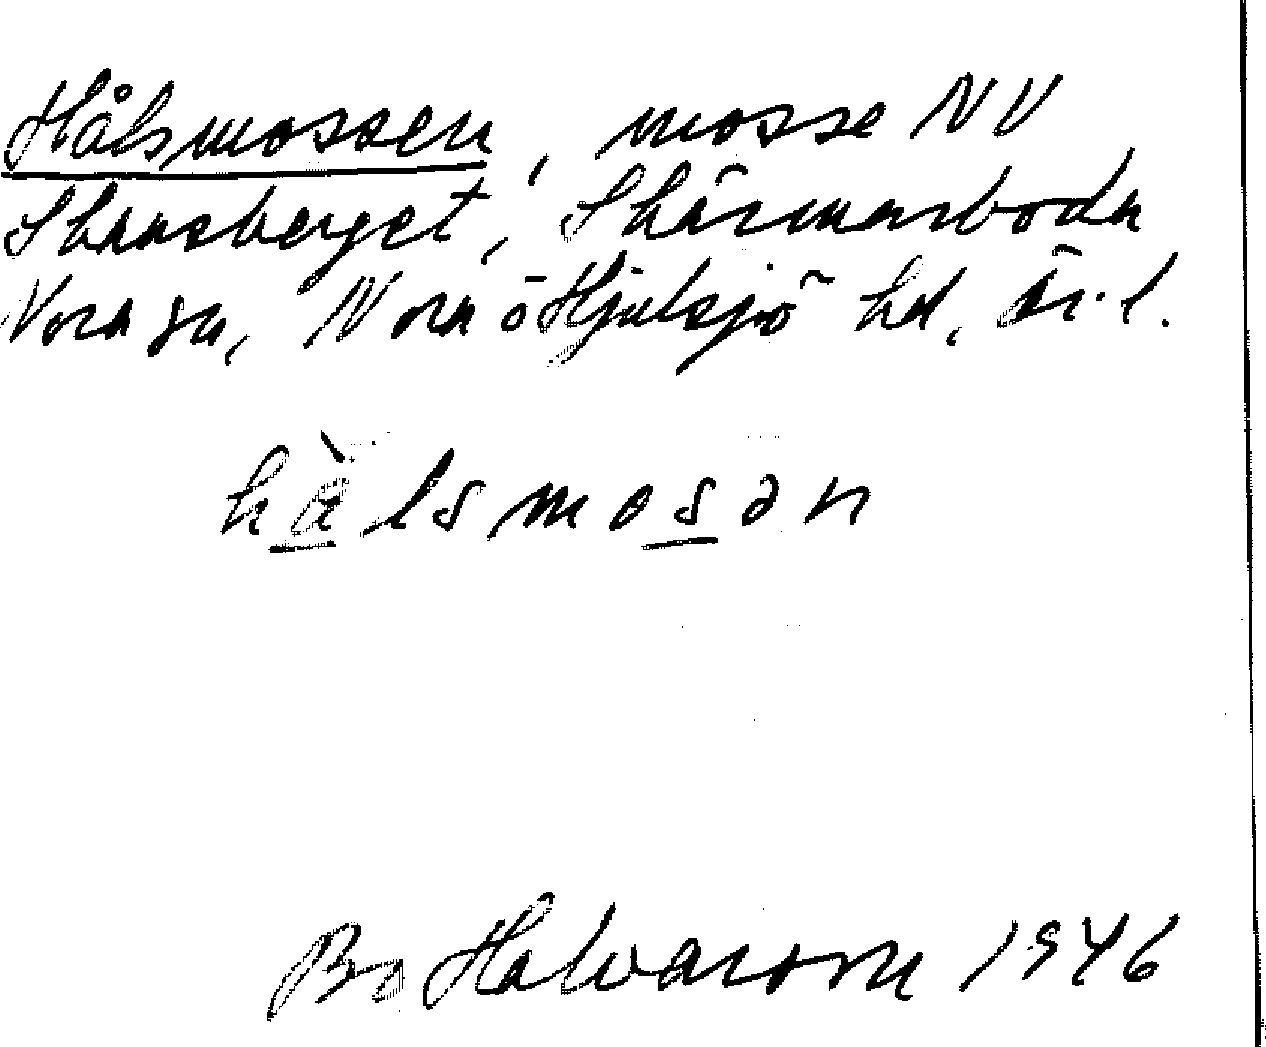 Hålsmossen, mosse NV
Skansberget, Skärmarboda
Nora sn, Nora o Hjulsjö hd, Ör. l.
hålsmosən
Bo Halvarson 1946